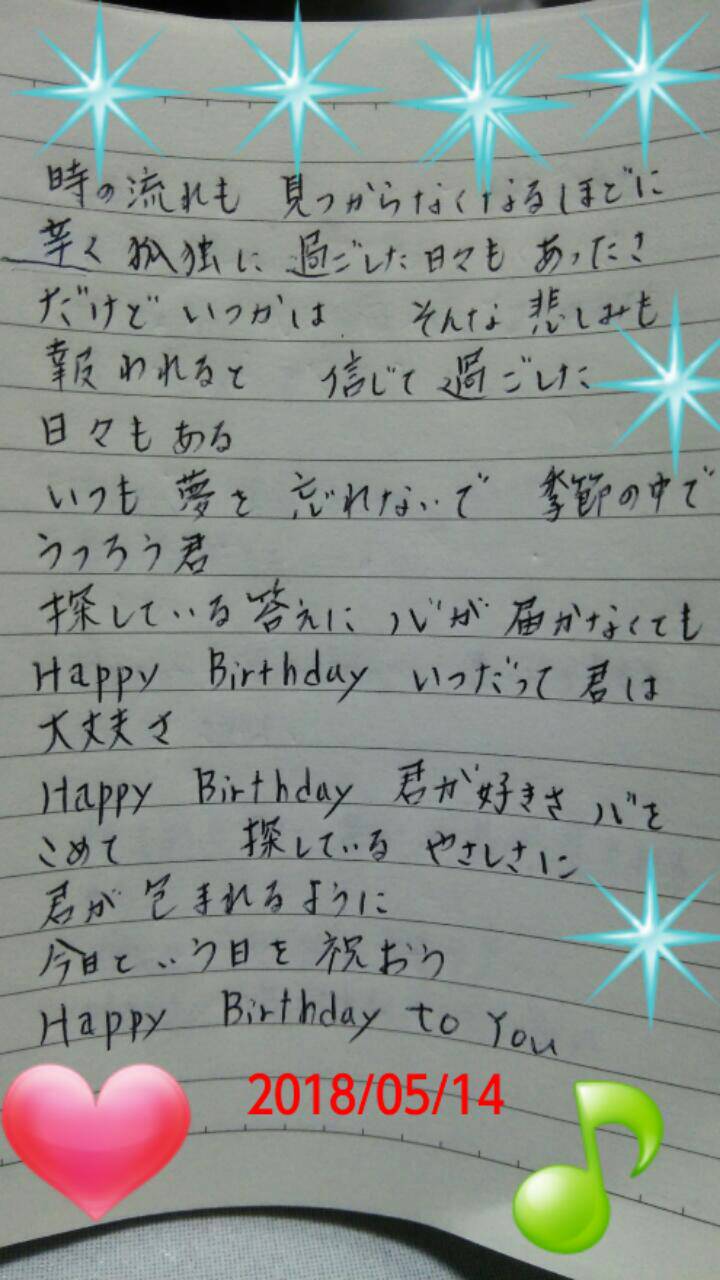 時の流れも 見つからなくなるほどに
辛く孤独に過ごした日々もあったさ
だけどいつかは そんな悲しみも
報われると 信じて過ごした
日々もある
いつも夢を忘れないで 季節の中で
うつろう君
探している答えに 心が届かなくても
Happy Birthday いつだって君は
大丈夫さ
Happy Birthday 君が好きさ 心を
こめて 探している やさしさに
君が包まれるように
今日という日を祝おう
Happy Birthday to You
2018/05/14